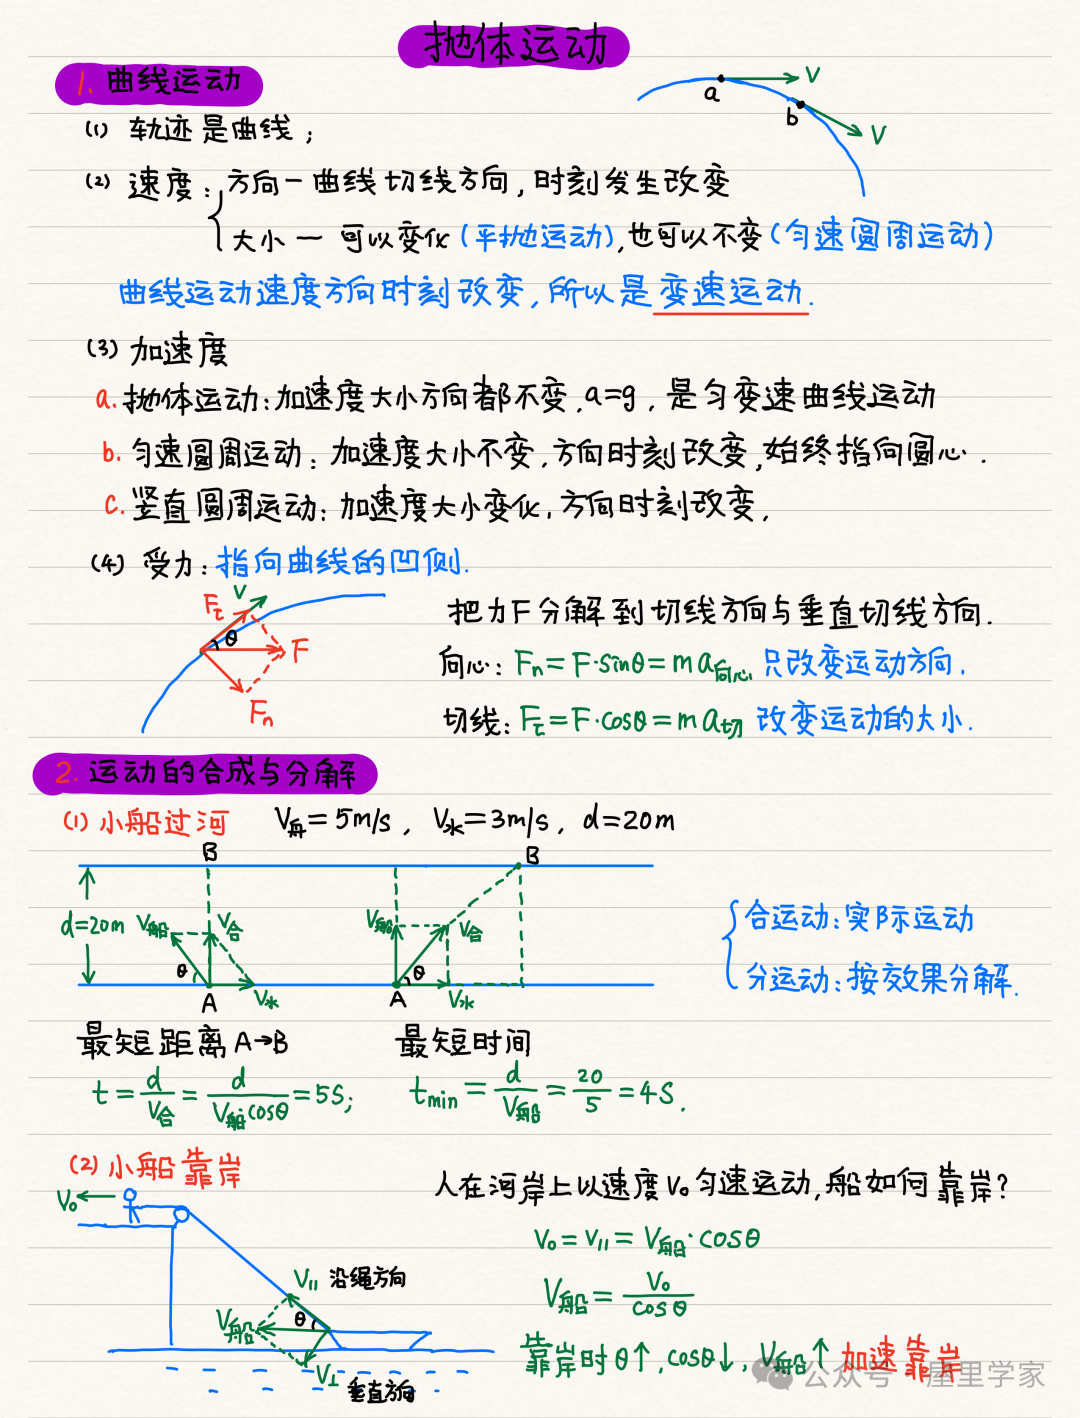 抛体运动
1. 曲线运动
a
V
b
V
(1) 轨迹是曲线；
(2) 速度：方向—曲线切线方向，时刻发生改变
大小— 可以变化(平抛运动)，也可以不变(匀速圆周运动)
曲线运动速度方向时刻改变，所以是变速运动.
(3) 加速度
a. 抛体运动：加速度大小方向都不变，a=g，是匀变速曲线运动
b. 匀速圆周运动：加速度大小不变，方向时刻改变，始终指向圆心.
c. 竖直圆周运动：加速度大小变化，方向时刻改变，
(4) 受力：指向曲线的凹侧.
Fτ
V
θ
F
Fn
把力F分解到切线方向与垂直切线方向.
向心：Fn=F·sinθ=ma向心 只改变运动方向.
切线：Fτ=F·cosθ=ma切 改变运动的大小.
2. 运动的合成与分解
(1) 小船过河 V舟=5m/s，V水=3m/s，d=20m
B
d=20m
V船
V合
θ
A
V水
B
V船
V合
θ
A
V水
合运动：实际运动
分运动：按效果分解.
最短距离A→B
t=d/V合=d/V船cosθ=5S;
最短时间
tmin=d/V船=20/5=4S.
(2) 小船靠岸
V₀
V∥ 沿绳方向
V船
θ
V⊥ 垂直方向
人在河岸上以速度V₀匀速运动，船如何靠岸？
V₀=V∥=V船·cosθ
V船=V₀/cosθ
靠岸时θ↑，cosθ↓，V船↑ 加速靠岸
公众号·屋里学家